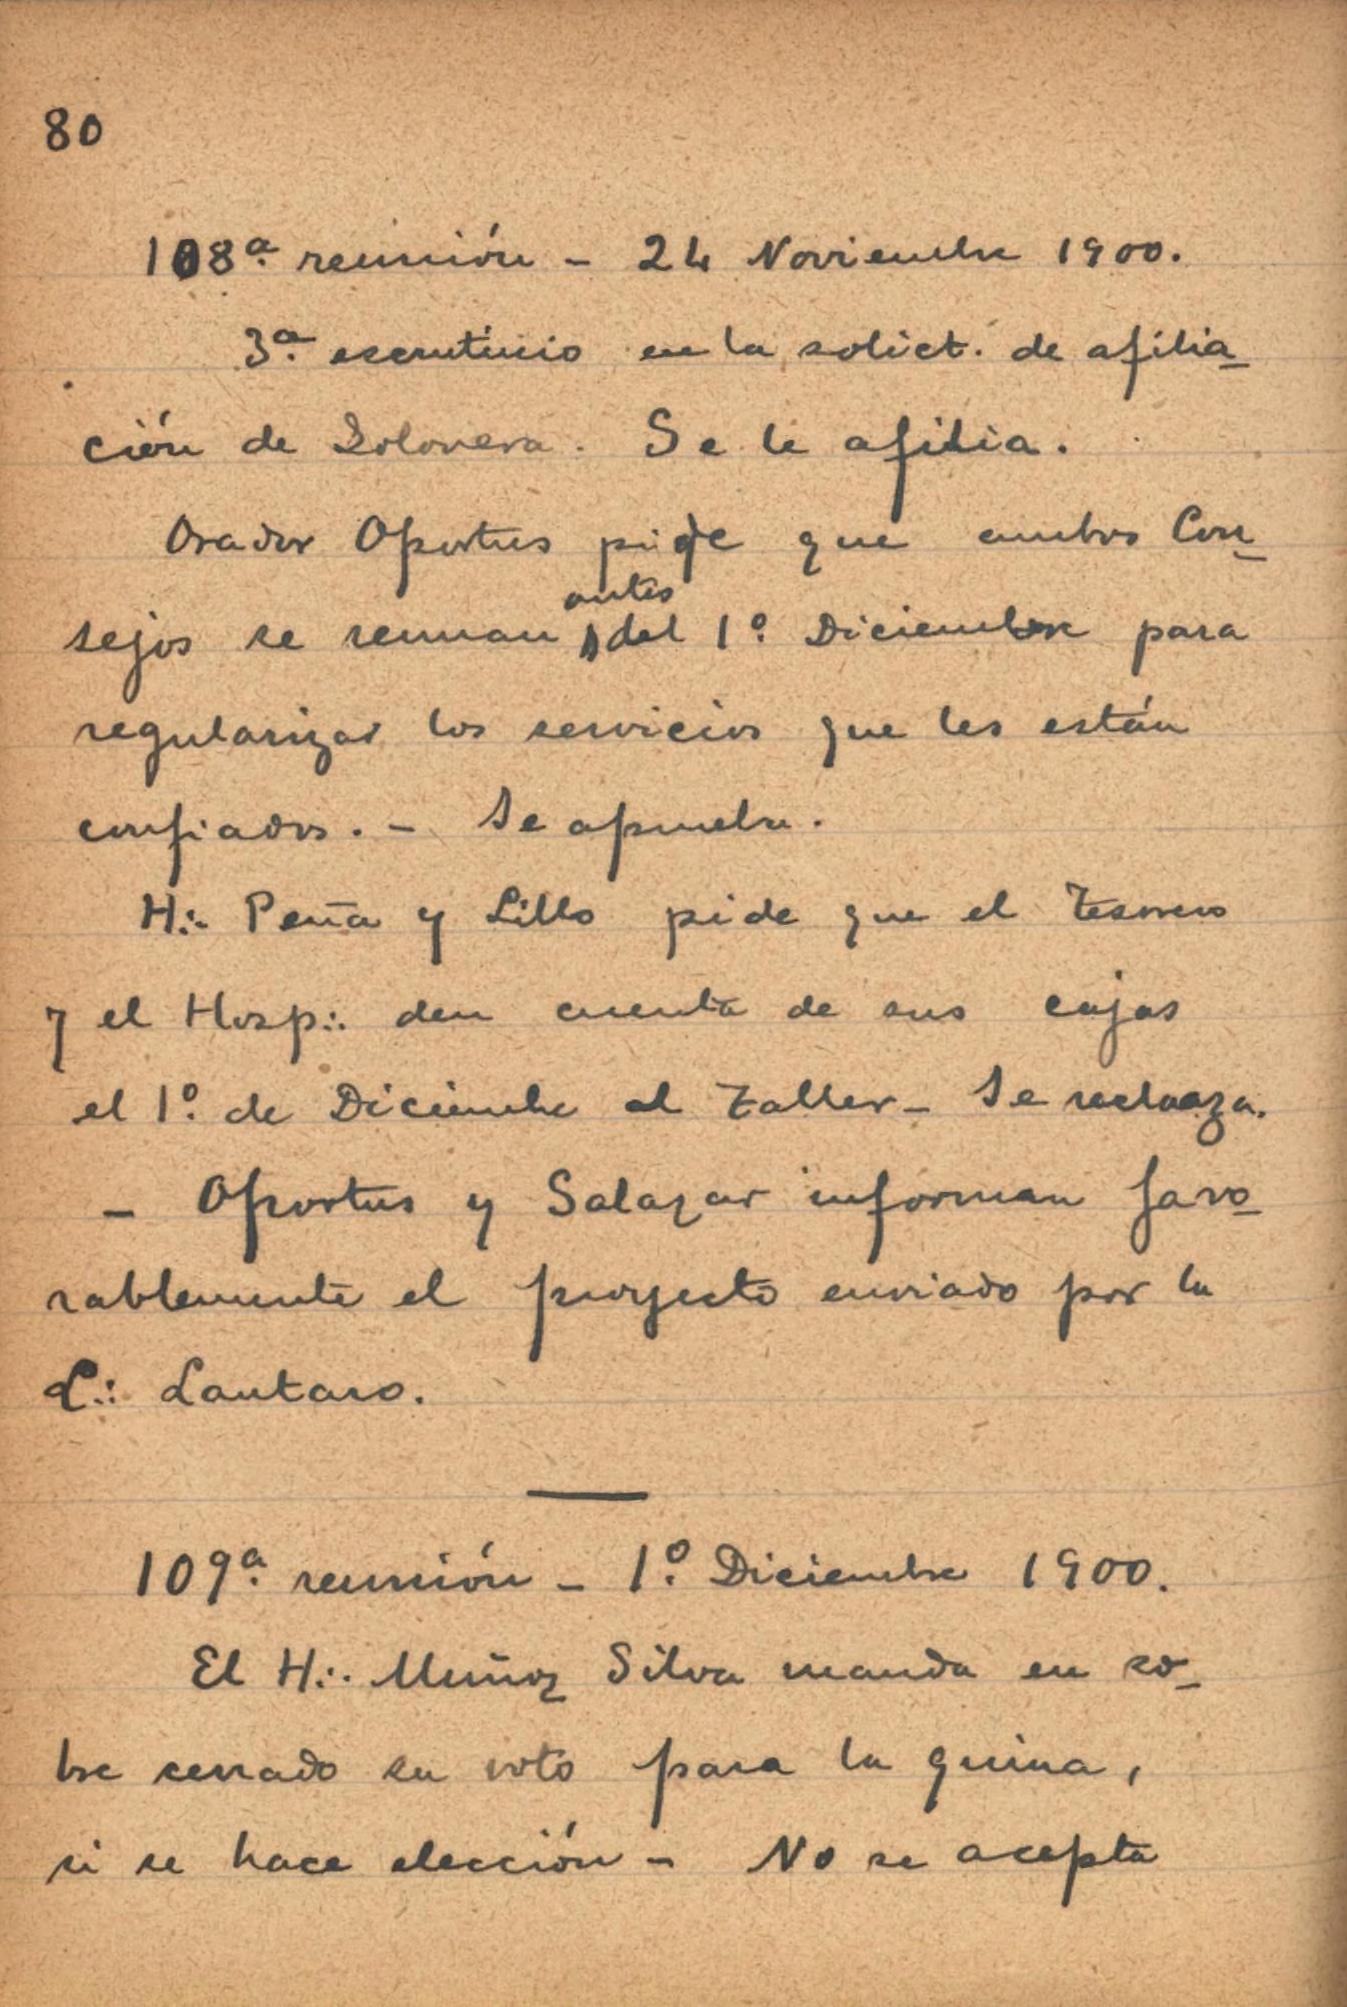 80
108ª reunión - 24 Noviembre 1900.
3ª escrutinio en la solict. de afilia-
ción de Solovera. Se le afilia.
Orador Oportus pide que ambos Con-
sejos se reunan antes del 1º Diciembre para
regularizar los servicios que les están
confiados. - Se aprueba.
H∴ Peña y Lillo pide que el Tesorero
y el Hosp∴ den cuenta de sus cajas
el 1º de Diciembre al Taller - Se rechaza.
- Oportus y Salazar informan favo-
rablemente el proyecto enviado por la
L∴ Lautaro.
109ª reunión - 1º Diciembre 1900.
El H∴ Muñoz Silva manda en so-
bre cerrado su voto para la quina,
si se hace elección - No se acepta